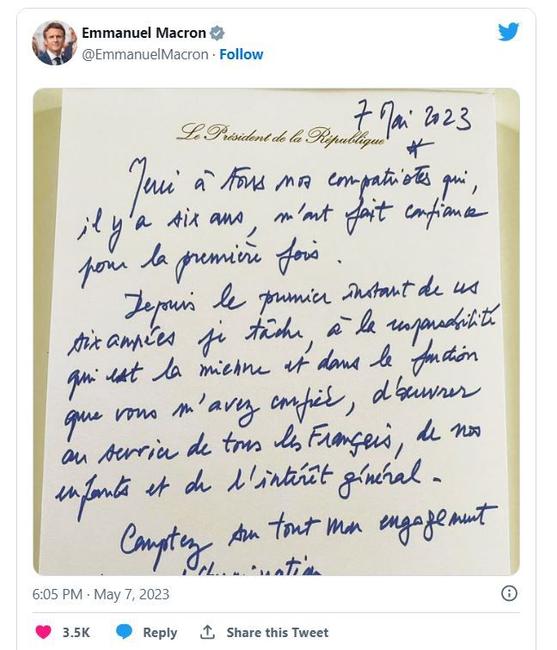 Emmanuel Macron
@EmmanuelMacron · Follow
7 Mai 2023
Le Président de la République
Merci à tous nos compatriotes qui,
il y a six ans, m'ont fait confiance
pour la première fois.
Depuis le premier instant de ces
six années je tâche, à la responsabilité
qui est la mienne et dans la fonction
que vous m'avez confiée, d'œuvrer
au service de tous les Français, de nos
enfants et de l'intérêt général.
Comptez sur tout mon engagement
détermination
6:05 PM · May 7, 2023
3.5K Reply Share this Tweet